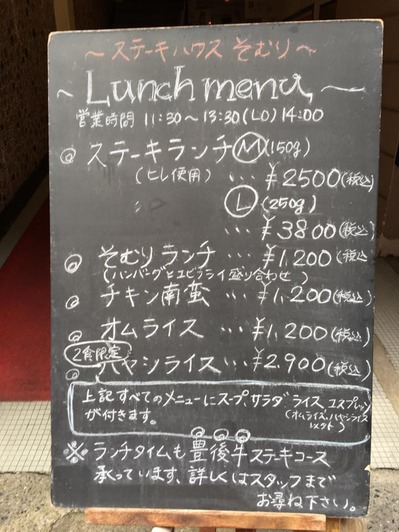 ～ステーキハウス そむり～
～Lunch menu～
営業時間 11:30～13:30(LO) 14:00
◎ ステーキランチ Ⓜ(150g)
(ヒレ使用) … ¥2500(税込)
〃 Ⓛ(250g)
… ¥3800(税込)
◎ そむりランチ … ¥1.200(税込)
(ハンバーグとエビフライ盛り合わせ)
◎ チキン南蛮 … ¥1.200(税込)
◎ オムライス … ¥1.200(税込)
2食限定
◎ ハヤシライス … ¥2.900(税込)
上記すべてのメニューにスープ サラダ ライス エスプレッソ
が付きます。(オムライス、ハヤシライス
以外)
※ ランチタイムも豊後牛ステーキコース
承っています、詳しくはスタッフまで
お尋ね下さい。